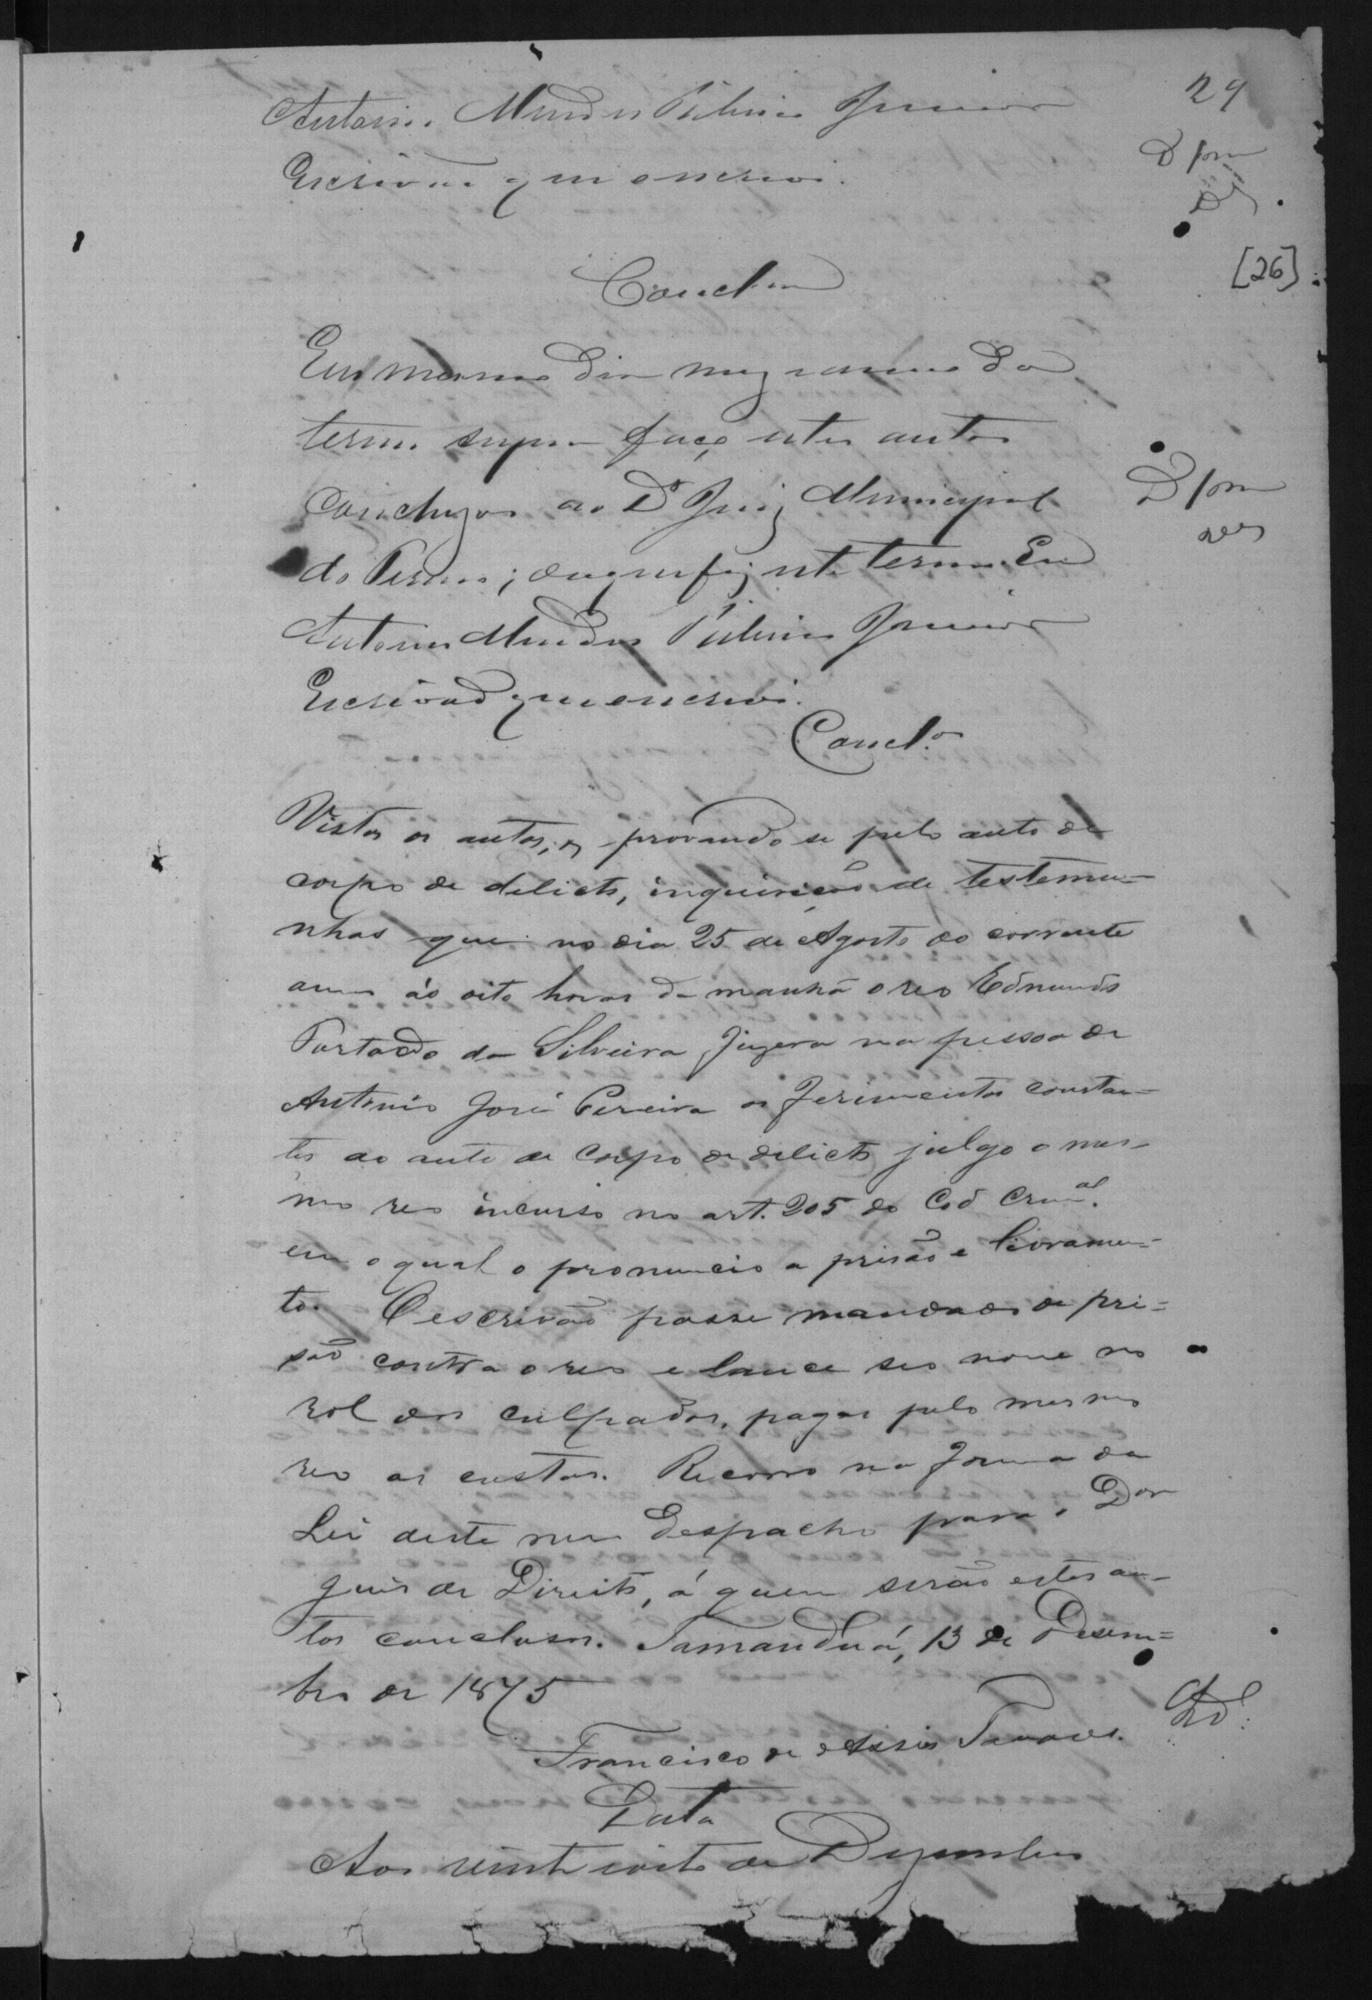 29
Antonio Mendes Ribeiro Junior
Escrivão que o escrevi.
[26]
Conclm
Em mesmo dia mez e anno do
termo supra faço estes autos
Concluzos ao Dr Juiz Municipal
do Termo; do que fiz este termo. Eu
Antonio Mendes Ribeiro Junior
Escrivão que o escrevi.
Concl.os
Vistos os autos, e provando se pelo auto de
corpo de delicto, inquirição de testemu-
nhas que no dia 25 de Agosto do corrente
anno ás oito horas da manhã o reo Edmundo
Furtado da Silveira fizera na pessoa de
Antonio José Pereira os ferimentos constan-
tes do auto de corpo de delicto julgo o mes-
mo reo incurso no art. 205 do Cod Crim.al
em o qual o pronuncio a prisão e livramen-
to. O escrivão passe mandado de pri-
são contra o reo e lance seo nome no
rol dos culpados, pagas pelo mesmo
reo as custas. Recorro na forma da
Lei deste meu despacho para o Dor
Juis de Direito, á quem serão estes au-
tos conclusos. Tamanduá, 13 de Desem-
bro de 1875
Francisco de Assis Tavares.
Data
Aos vinte oito de Dezembro